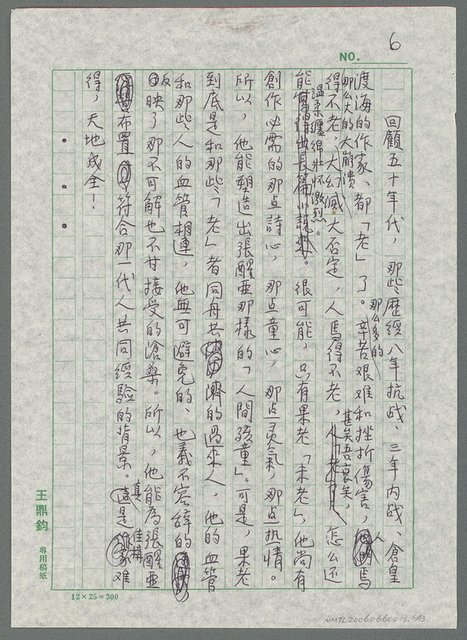 6
NO.
回顧五十年代，那些歷經八年抗战、三年內战、倉皇
渡海的作家、都「老」了。那么多的辛苦艰难和挫折傷害，人馬
那么大的大崩潰
得不老，大幻滅大否定，人馬得不老，甚矣吾衰矣，怎么还
能溫柔纏綿壯怀激烈。很可能，只有果老「未老」，他尚有
創作必需的那点詩心，那点童心，那点灵氣，那点热情。
所以，他能塑造出張醒亜那樣的「人間孩童」。可是，果老
到底是和那些「老」者同舟共濟的過來人，他的血管
和那些人的血管相連，他無可避免的、也義不容辞的
反映了那不可解也不甘接受的滄桑。所以，他能為張醒亜
布置符合那一代人共同經驗的背景。真是佳構难
得，天地成全！
王鼎鈞 專用稿紙
12×25=300